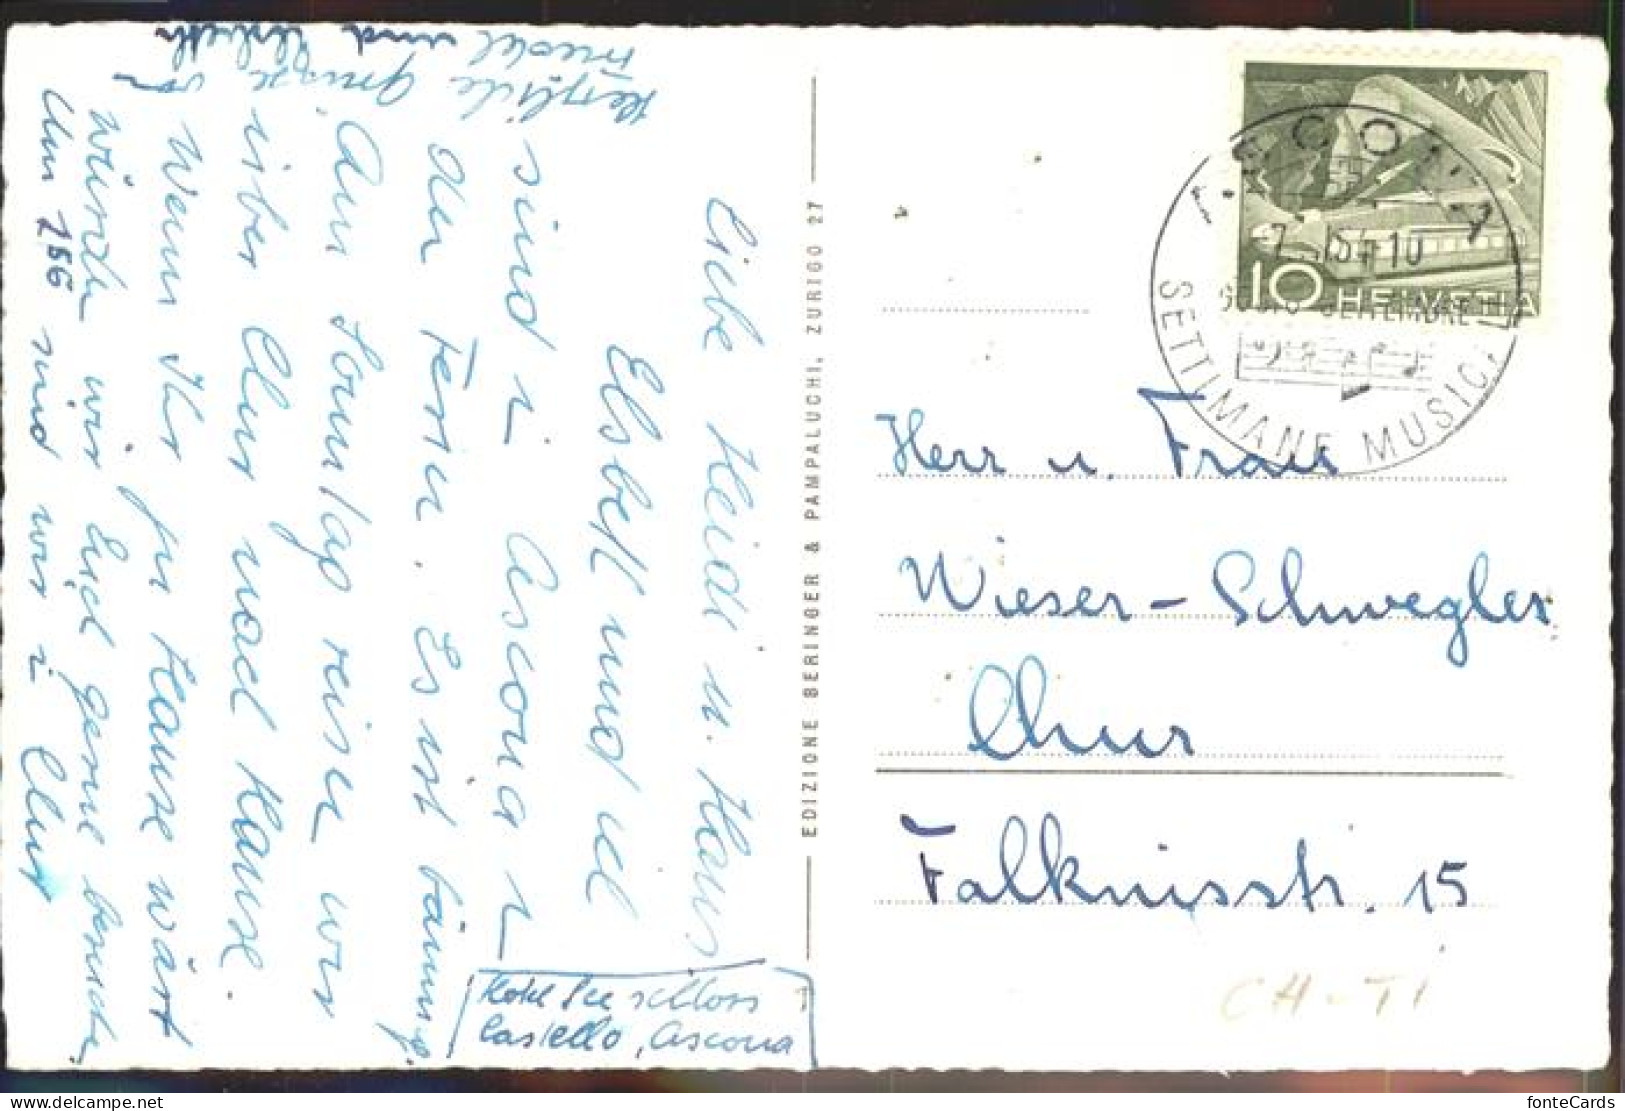 Liebe Heidi u. Hans
Elsbeth und ich
sind in Ascona in
den Ferien. Es ist bäumig.
Am Sonntag reisen wir
über Chur nach Hause.
Wenn Ihr zu Hause wärt
würden wir Euch gerne besuchen
Um 156 sind wir in Chur
Herzliche Grüsse
und
Hotel See schloss
Castello, Ascona
EDIZIONE BERINGER & PAMPALUCHI, ZURIGO 27
ASCONA
SETTIMANE MUSICALI
10 HELVETIA
Herr u. Frau
Wieser-Schwegler
Chur
Falknisstr. 15
CH-TI
fonteCards